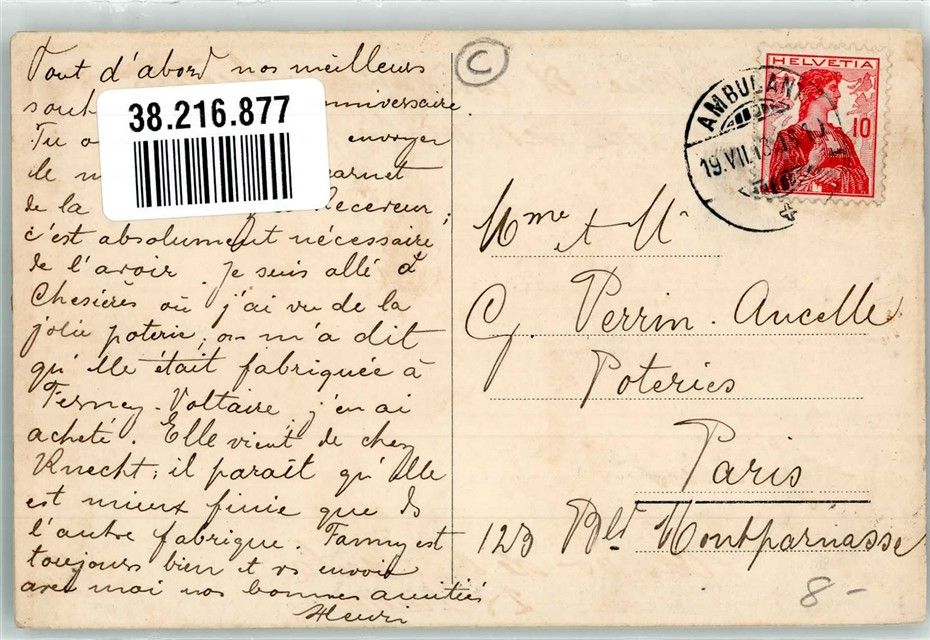 Tout d'abord nos meilleurs
souh anniversaire
Tu envoyer
le carnet
de la Receveur ;
c'est absolument nécessaire
de l'avoir Je suis allé à
Chesières où j'ai vu de la
jolie poterie, on m'a dit
qu'elle était fabriquée à
Ferney-Voltaire j'en ai
acheté. Elle vient de chez
Knecht; il paraît qu'elle
est mieux finie que ds
l'autre fabrique. Fanny est
toujours bien et vs envoie
avec moi nos bonnes amitiés
Henri
38.216.877
C
HELVETIA
10
AMBULANT
19.VII.13
Mme et Mr
G. Perrin-Aucelle
Poteries
Paris
123 Bld Montparnasse
8-